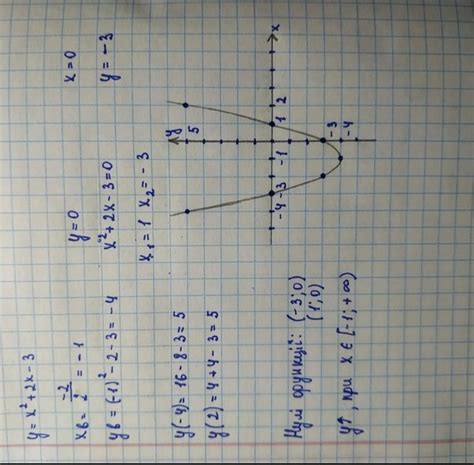 y = x² + 2x - 3
x_в = -2/2 = -1
y_в = (-1)² - 2 - 3 = -4
y=0
x² + 2x - 3 = 0
x₁ = 1 x₂ = -3
x = 0
y = -3
y(-4) = 16 - 8 - 3 = 5
y(2) = 4 + 4 - 3 = 5
Нулі функції: (-3; 0)
(1; 0)
y↑, при x ∈ [-1; +∞)
y
5
x
-4 -3 -1 1 2
-3
-4